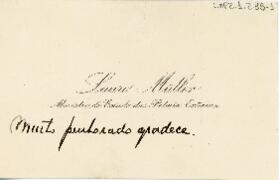 Lauro Müller
Ministro de Estado das Relações Exteriores
Muito penhorado agradece.